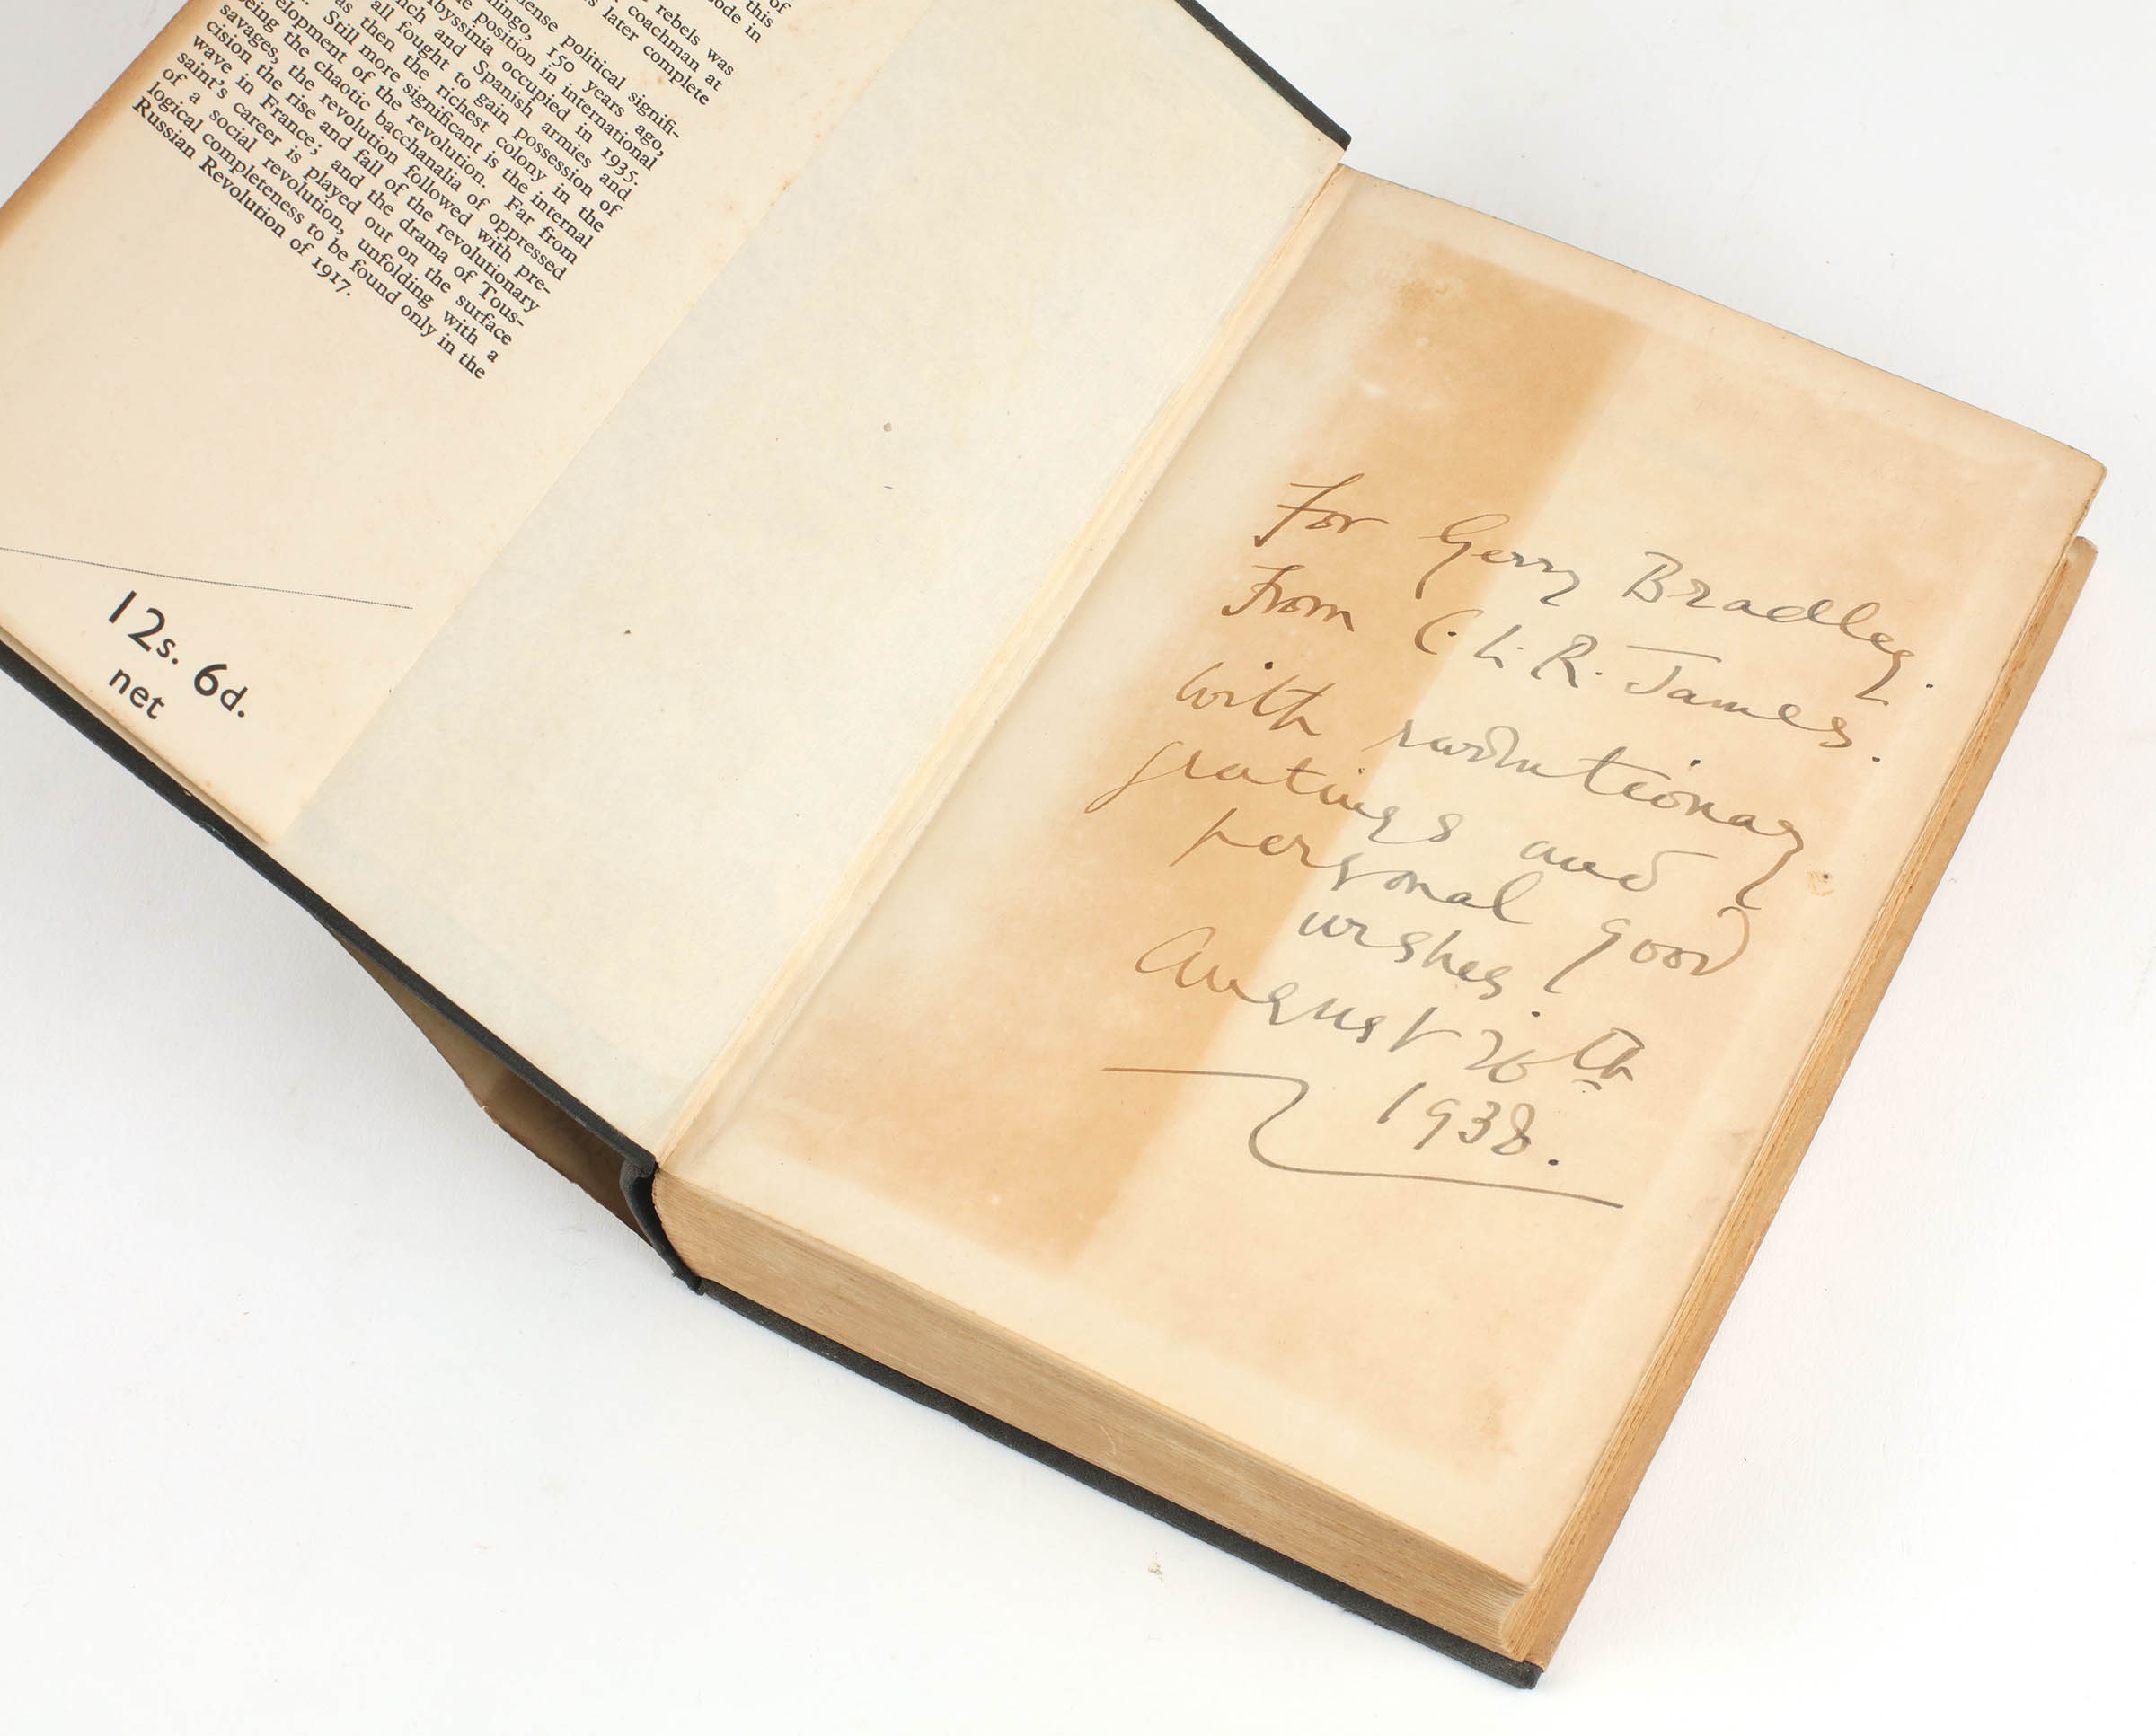 of
this
ode in
rebels was
coachman at
later complete
ense political signifi-
mingo, 150 years ago,
e position in international
byssinia occupied in 1935.
nch and Spanish armies and
all fought to gain possession of
as then the richest colony in the
Still more significant is the internal
elopment of the revolution. Far from
eing the chaotic bacchanalia of oppressed
savages, the revolution followed with pre-
cision the rise and fall of the revolutionary
wave in France; and the drama of Tous-
saint's career is played out on the surface
of a social revolution, unfolding with a
logical completeness to be found only in the
Russian Revolution of 1917.
12s. 6d.
net
For Gerry Bradley.
From C. L. R. James.
with revolutionary
greetings and
personal good
wishes.
August 26th
1938.